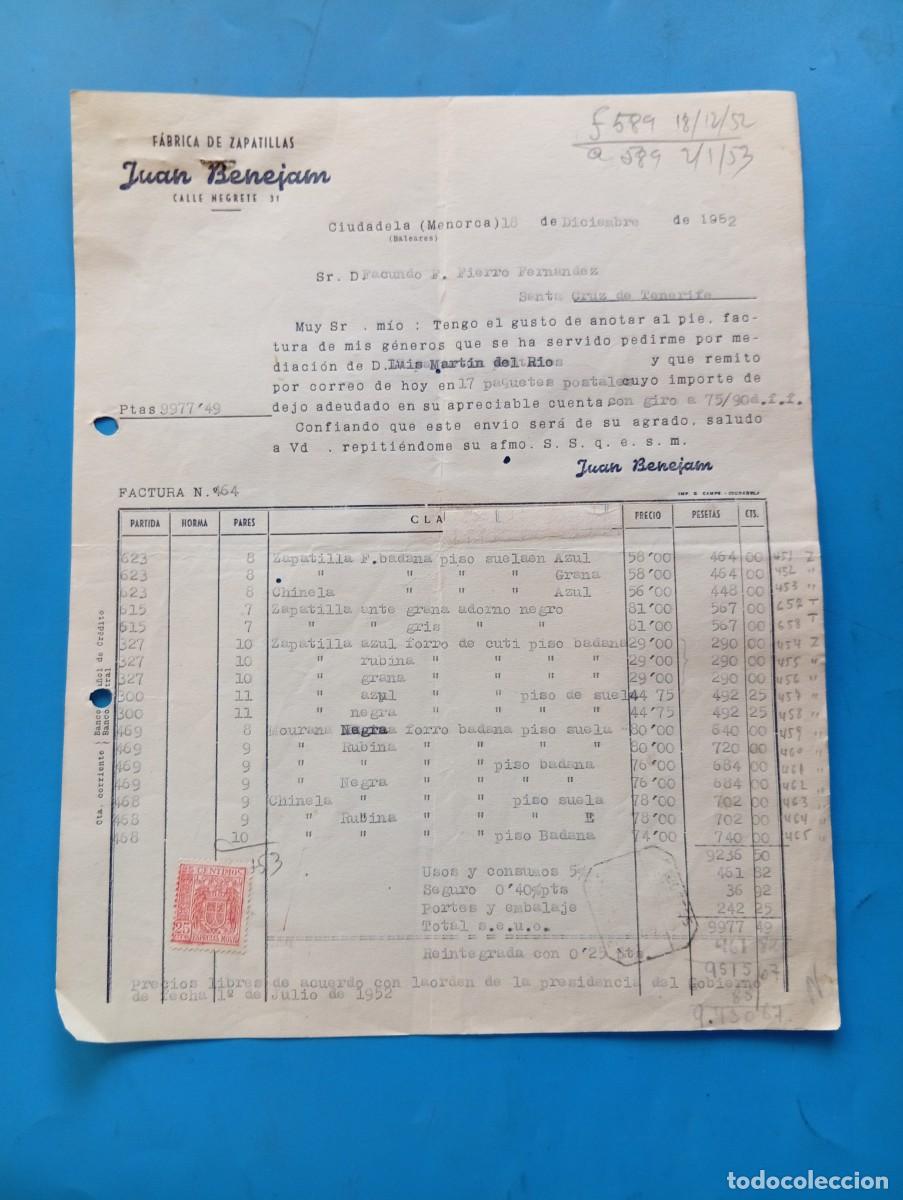 FÁBRICA DE ZAPATILLAS
Juan Benejam
CALLE NEGRETE 31
f 589 18/12/52
a 589 2/1/53
Ciudadela (Menorca) 18 de Diciembre de 1952
(Baleares)
Sr. D Facundo F. Fierro Fernandez
Santa Cruz de Tenerife
Muy Sr . mío : Tengo el gusto de anotar al pie, fac-
tura de mis géneros que se ha servido pedirme por me-
diación de D. Luis Martín del Rios y que remito
por correo de hoy en 17 paquetes postales cuyo importe de
Ptas 9977'49 dejo adeudado en su apreciable cuenta, con giro a 75/90 d.f.f.
Confiando que este envio será de su agrado, saludo
a Vd . repitiéndome su afmo. S. S. q. e. s. m.
Juan Benejam
FACTURA N.º 464
PARTIDA NORMA PARES CLA PRECIO PESETAS CTS.
623 8 Zapatilla F. badana piso suelaen Azul 58'00 464 00 451 Z
623 8 " " " " Grana 58'00 464 00 452 "
623 8 Chinela " " " Azul 56'00 448 00 453 "
615 7 Zapatilla ante grana adorno negro 81'00 567 00 657 T
615 7 " " gris " " 81'00 567 00 658 T
327 10 Zapatilla azul forro de cuti piso badana 29'00 290 00 454 Z
327 10 " rubina " " " " 29'00 290 00 455 "
327 10 " grana " " " " 29'00 290 00 456 "
300 11 " azul " " piso de suela 44'75 492 25 457 "
300 11 " negra " " " " " 44'75 492 25 458 "
469 8 Mourana Negra forro badana piso suela 80'00 640 00 459 "
469 9 " Rubina " " " " 80'00 720 00 460 "
469 9 " " " " piso badana 76'00 684 00 461 "
469 9 " Negra " " " " 76'00 684 00 462 "
468 9 Chinela " " " piso suela 78'00 702 00 463 "
468 9 " Rubina " " " E 78'00 702 00 464 "
468 10 " " " " piso Badana 74'00 740 00 465 "
153 9236 50
Usos y consumos 5% 461 82
Seguro 0'40%pts 36 92
Portes y embalaje 242 25
Total s.e.u.o. 9977 49
Reintegrada con 0'25 Pts.
461 82
9515 67
Precios libres de acuerdo con laorden de la presidencia del Gobierno
de fecha 1º de Julio de 1952
85
9.430 67
Cta. corriente
25 CENTIMOS
25
ESPECIAL MOVIL
IMP. S. CAMPS - CIUDADELA
todocoleccion